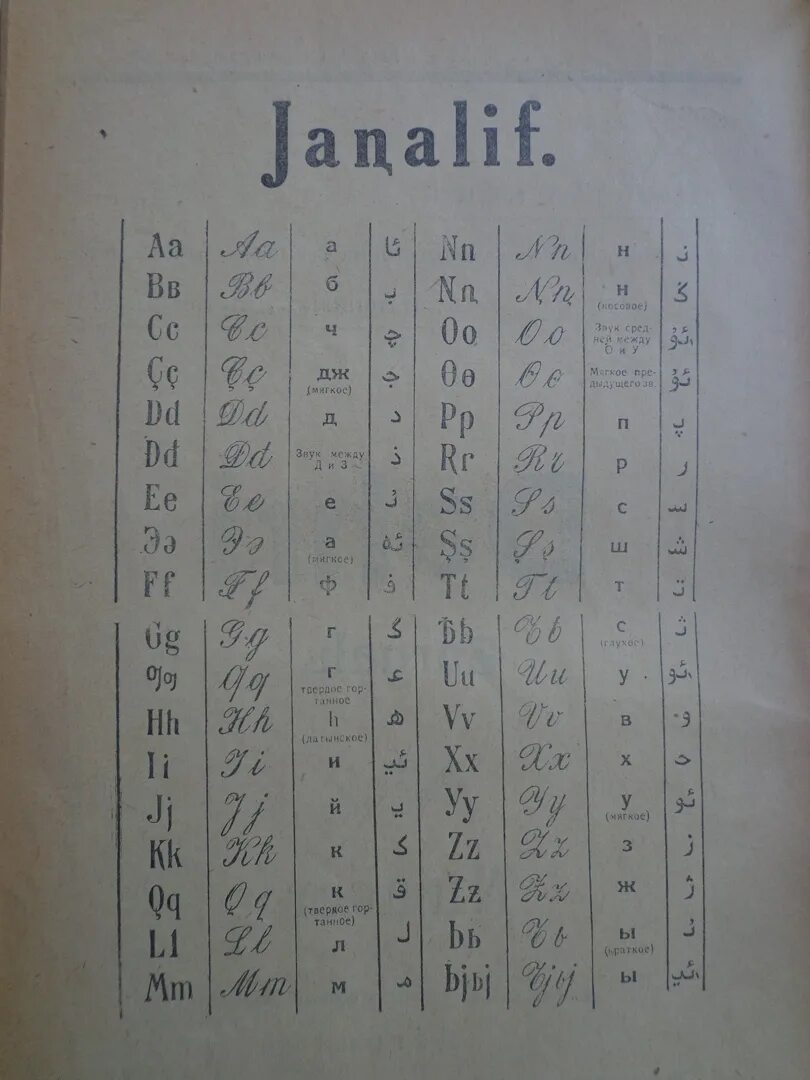 Jaꞑalif.
Aa Aa а ئا Nn Nn н ن
Bʙ Bʙ б ب Ꞑꞑ Ꞑꞑ н (носовое) ڭ
Cc Cc ч چ Oo Oo Звук средней между О и У ئۇ
Çç Çç дж (мягкое) ج Ɵɵ Ɵɵ Мягкое предыдущего зв. ئۇ
Dd Dd д د Pp Pp п پ
Đđ Đđ Звук между Д и З ذ Rr Rr р ر
Ee Ee е Ss Ss с س
Əə Əə а (мягкое) ئە Şş Şş ш ش
Ff Ff ф ف Tt Tt т ت
Gg Gg г گ Ѣѣ Ѣѣ с (глухое) ث
Ƣƣ Ƣƣ г твердое гортанное ع Uu Uu у ئو
Hh Hh h (латынское) ھ Vv Vv в ۋ
Ii Ii и ئي Xx Xx х ح
Jj Jj й ي Yy Yy у (мягкое) ئو
Kk Kk к ک Zz Zz з ز
Qq Qq к (твердое гортанное) ق Ƶƶ Ƶƶ ж ژ
Ll Ll л ل Ьь Ьь ы (краткое)
Mm Mm м م Ьjьj Ьjьj ы ئي